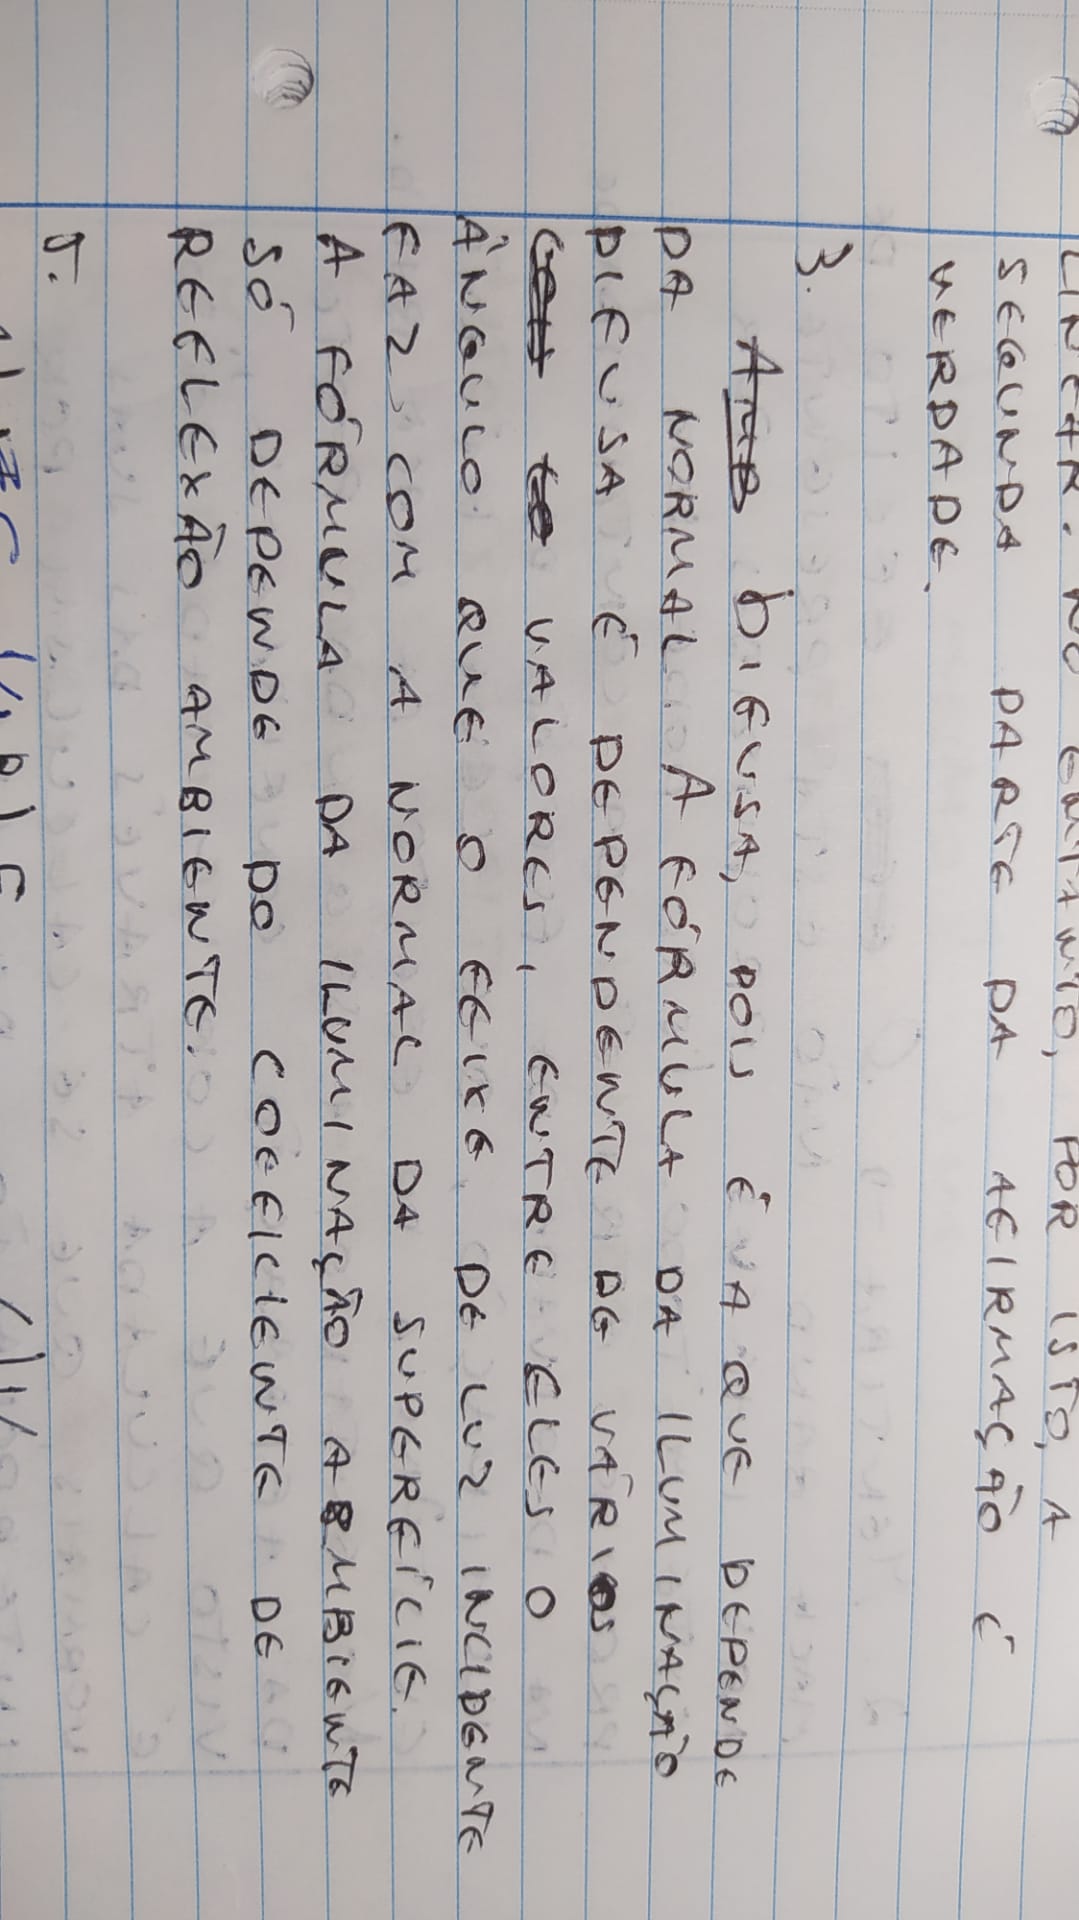 LINEAR. NO ENTANTO, POR ISTO, A
SEGUNDA PARTE DA AFIRMAÇÃO É
VERDADE.
3.
DIFUSA, POIS É A QUE DEPENDE
DA NORMAL. A FÓRMULA DA ILUMINAÇÃO
DIFUSA É DEPENDENTE DE VÁRIOS
VALORES, ENTRE ELES O
ÂNGULO QUE O FEIXE DE LUZ INCIDENTE
FAZ COM A NORMAL DA SUPERFÍCIE.
A FÓRMULA DA ILUMINAÇÃO AMBIENTE
SÓ DEPENDE DO COEFICIENTE DE
REFLEXÃO AMBIENTE.
5.